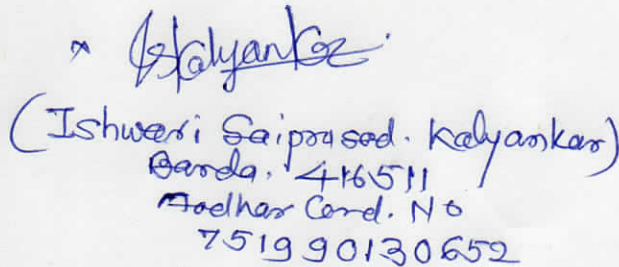 × ISKalyankar.
(Ishwari Saiprasad. Kalyankar)
Banda. 416511
Aadhar Card. No
751990130652